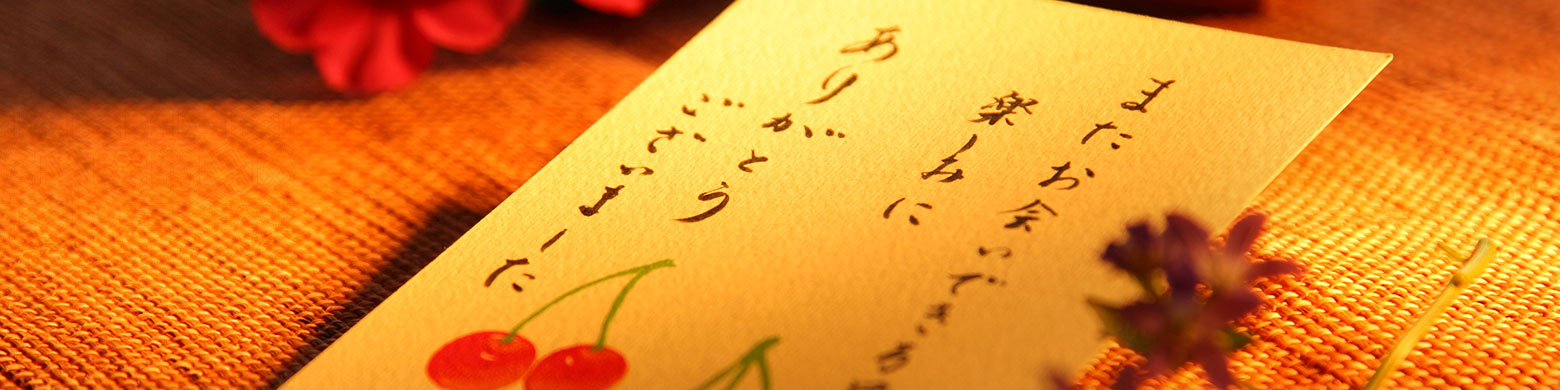 またお会いでき
楽しみに
ありがとう
ございました